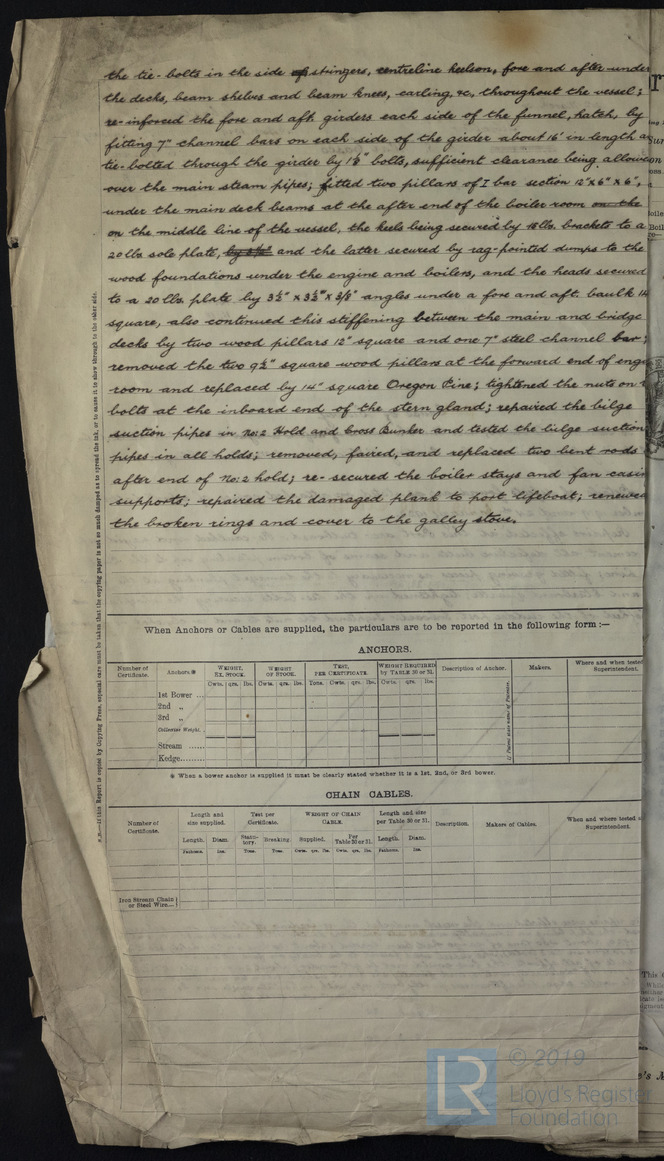 the tie-bolts in the side of stringers, centreline keelson, fore and after under
the decks, beam shelves and beam knees, carling, &c, throughout the vessel;
re-inforced the fore and aft girders each side of the funnel, hatch, by
fitting 7" channel bars on each side of the girder about 16' in length a
tie-bolted through the girder by 1⅛" bolts, sufficient clearance being allow
over the main steam pipes; fitted two pillars of I bar section 12"x6"x6",
under the main deck beams at the after end of the boiler room on the
on the middle line of the vessel, the heels being secured by 18 lbs. brackets to a
20 lbs sole plate, and the latter secured by rag-pointed dumps to the
wood foundations under the engine and boilers, and the heads secured
to a 20 lbs plate by 3½" x 3½" x 3/8" angles under a fore and aft. baulk 14
square, also continued this stiffening between the main and bridge
decks by two wood pillars 12" square and one 7" steel channel bar;
removed the two 9½" square wood pillars at the forward end of eng
room and replaced by 14" square Oregon Pine; tightened the nuts on
bolts at the inboard end of the stern gland; repaired the bilge
suction pipes in No:2 Hold and Cross Bunker and tested the bilge suction
pipes in all holds; removed, faired, and replaced two bent rods
after end of No:2 hold; re-secured the boiler stays and fan casin
supports; repaired the damaged plank to port lifeboat; renewed
the broken rings and cover to the galley stove.
N.B.—If this Report is copied by Copying Press, especial care must be taken that the copying paper is not so much damped as to spread the ink, or to cause it to show through to the other side.
When Anchors or Cables are supplied, the particulars are to be reported in the following form :—
ANCHORS.
Number of Certificate. Anchors.* WEIGHT, EX. STOCK. WEIGHT OF STOCK. TEST, PER CERTIFICATE. WEIGHT REQUIRED by TABLE 30 or 31. Description of Anchor. Makers. Where and when tested Superintendent.
Cwts. qrs. lbs. Cwts. qrs. lbs. Tons. Cwts. qrs. lbs. Cwts. qrs. lbs.
1st Bower ...
2nd „
3rd „
Collective Weight.
Stream ......
Kedge.........
If Patent state name of Patentee.
* When a bower anchor is supplied it must be clearly stated whether it is a 1st, 2nd, or 3rd bower.
CHAIN CABLES.
Number of Certificate. Length and size supplied. Test per Certificate. WEIGHT OF CHAIN CABLE. Length and size per Table 30 or 31. Description. Makers of Cables. When and where tested Superintendent.
Length. Diam. Statutory. Breaking. Supplied. Per Table 30 or 31. Length. Diam.
Fathoms. Ins. Tons. Tons. Cwts. qrs. lbs. Cwts. qrs. lbs. Fathoms. Ins.
Iron Stream Chain
or Steel Wire.—
This
LR
© 2019
Lloyd's Register
Foundation